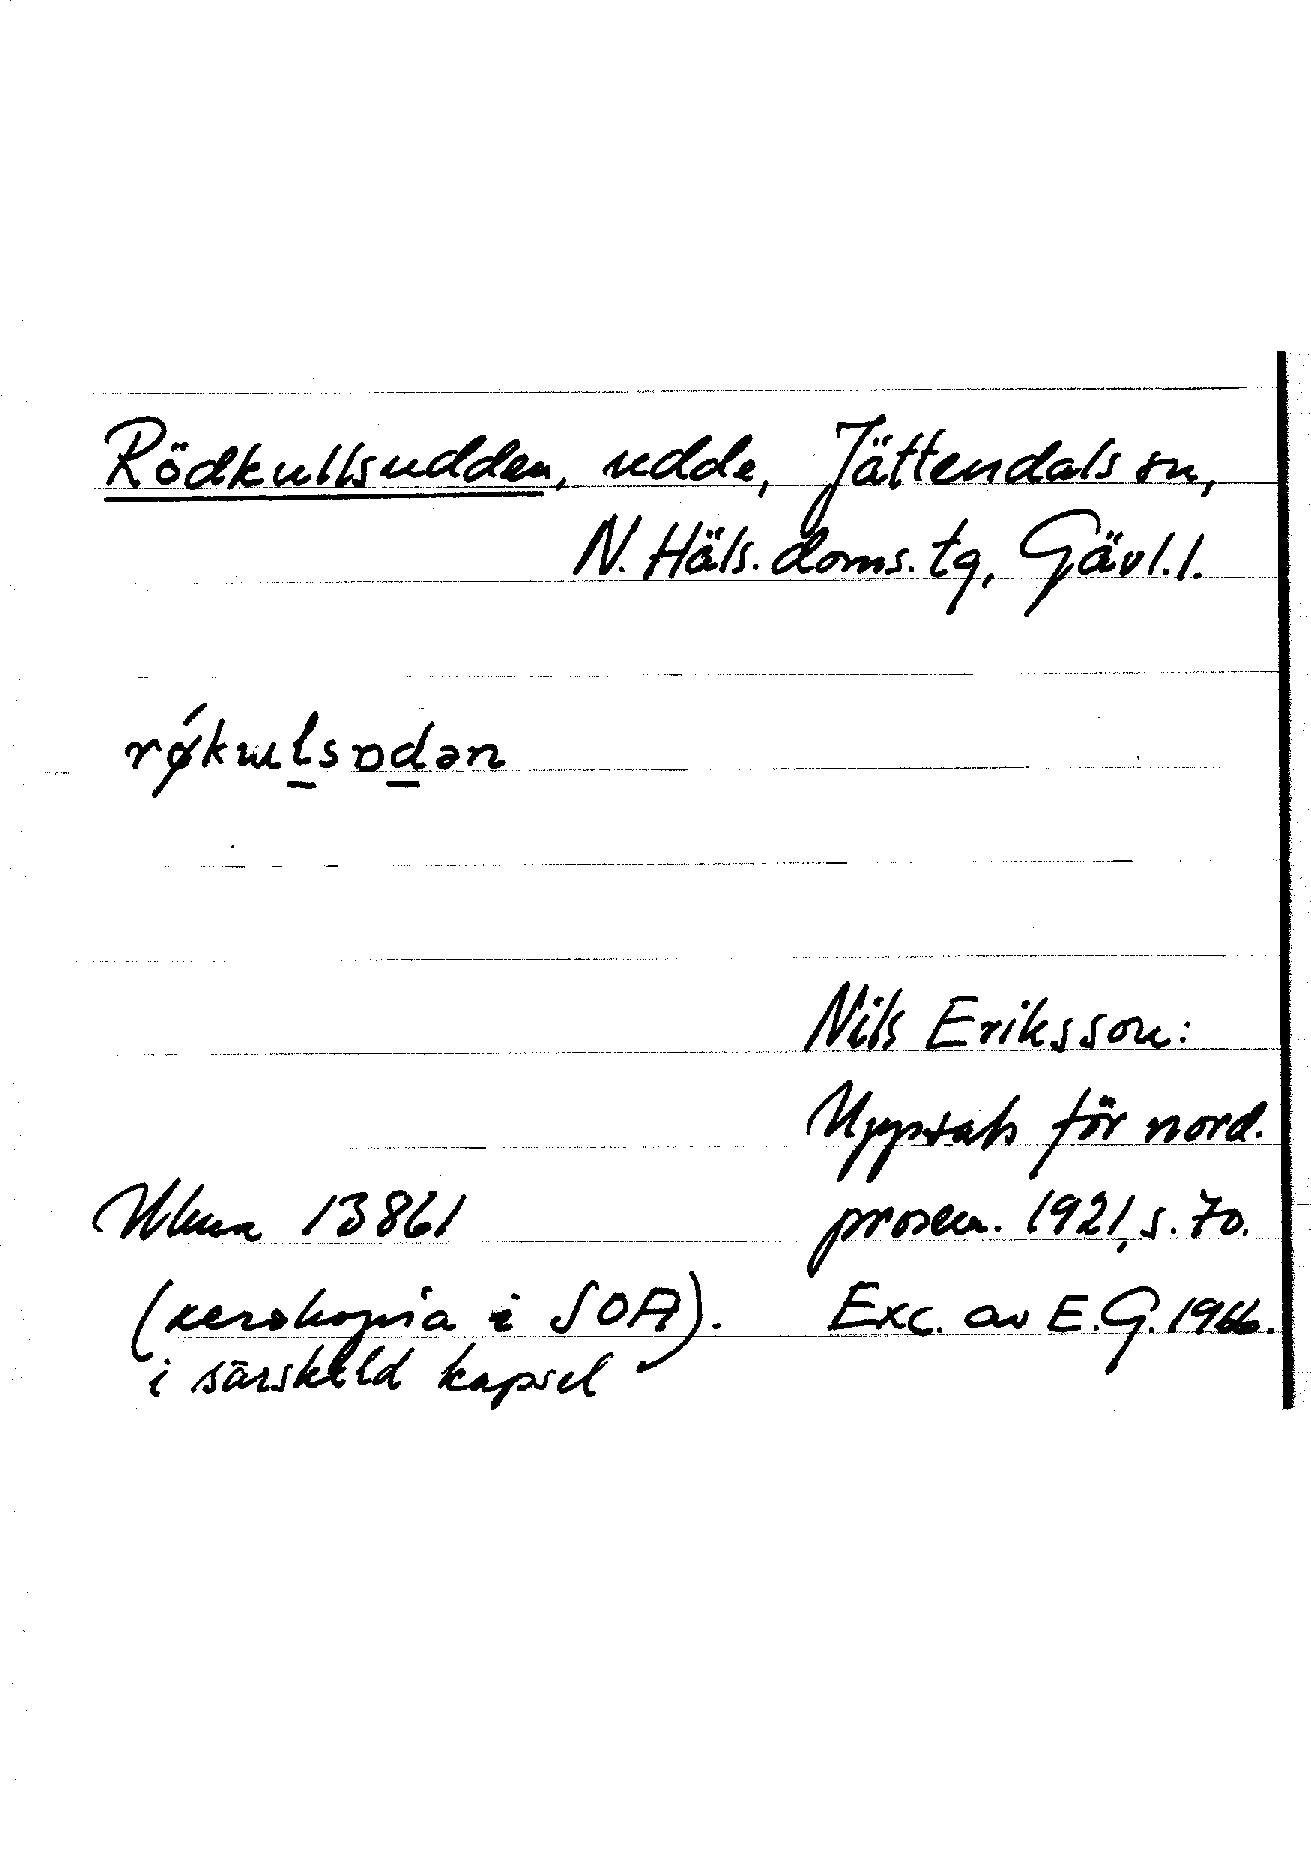 Rödkullsudden, udde, Jättendals sn,
N. Häls. doms. tg, Gävl. l.
rǿkuɯlsɒdən
Nils Eriksson:
Uppsats för nord.
prosem. 1921, s. 70.
Ulma 13861
(xerokopia i SOA).
i särskild kapsel
Exc. av E.G. 1966.